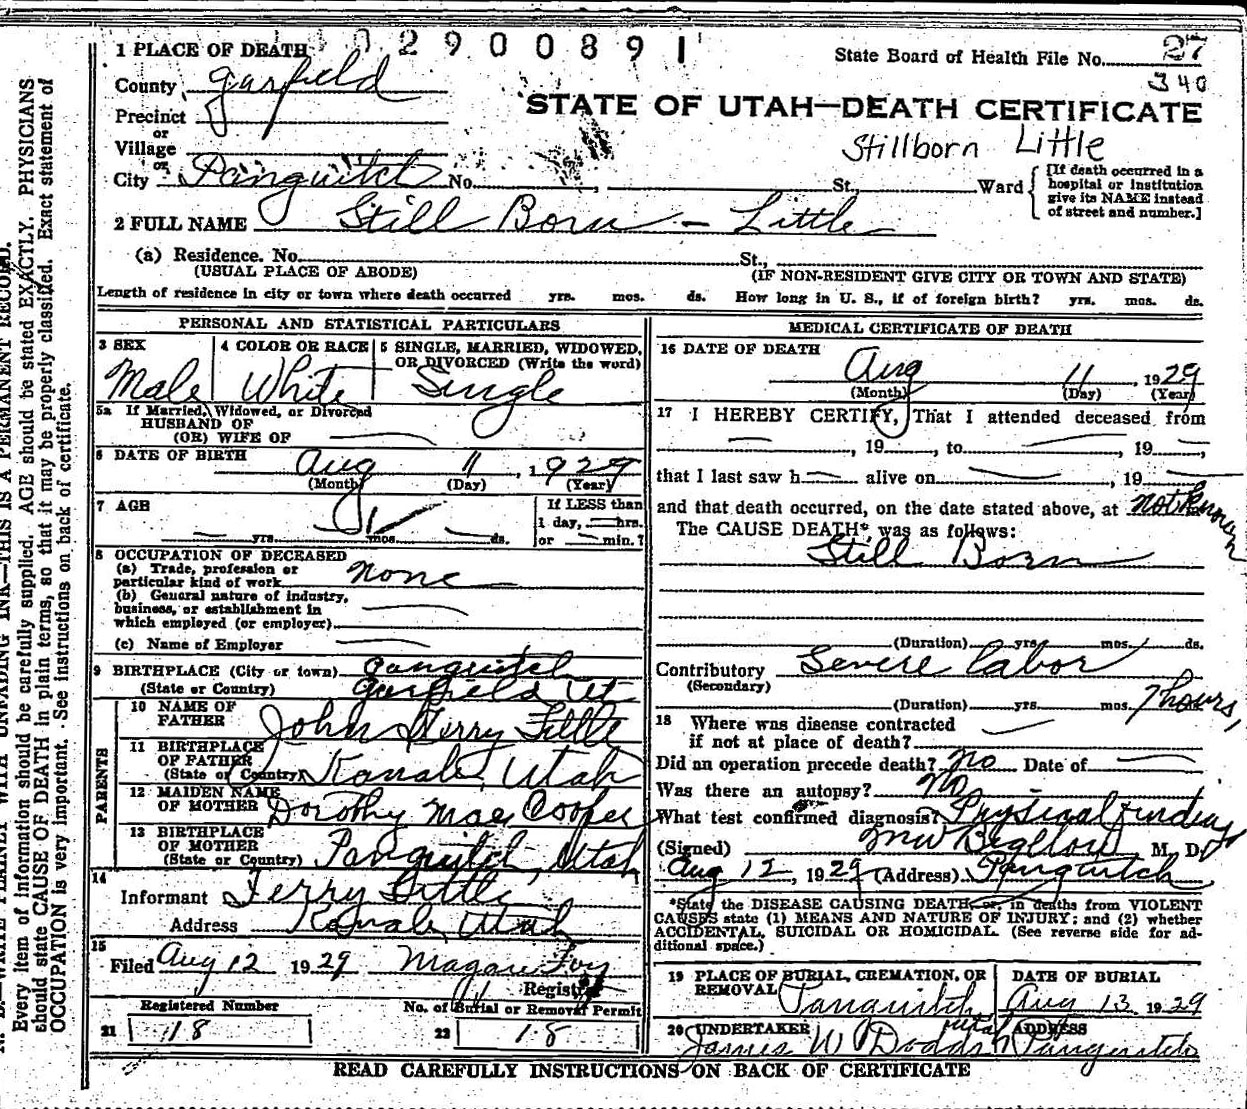 02900891
1 PLACE OF DEATH
State Board of Health File No. 27
340
County Garfield
STATE OF UTAH—DEATH CERTIFICATE
Precinct
or
Village
Stillborn Little
or
City Panguitch No. , St., Ward
[If death occurred in a
hospital or institution
give its NAME instead
of street and number.]
2 FULL NAME Still Born - Little
(a) Residence. No. St.,
(USUAL PLACE OF ABODE) (IF NON-RESIDENT GIVE CITY OR TOWN AND STATE)
Length of residence in city or town where death occurred yrs. mos. ds. How long in U. S., if of foreign birth? yrs. mos. ds.
PERSONAL AND STATISTICAL PARTICULARS
3 SEX
Male
4 COLOR OR RACE
White
5 SINGLE, MARRIED, WIDOWED,
OR DIVORCED (Write the word)
Single
5a If Married, Widowed, or Divorced
HUSBAND OF
(OR) WIFE OF
6 DATE OF BIRTH Aug 11, 1929
(Month) (Day) (Year)
7 AGE
yrs. mos. ds.
If LESS than
1 day, hrs.
or min.?
8 OCCUPATION OF DECEASED
(a) Trade, profession or
particular kind of work none
(b) General nature of industry,
business, or establishment in
which employed (or employer)
(c) Name of Employer
9 BIRTHPLACE (City or town) Panguitch
(State or Country) Garfield Ut
PARENTS
10 NAME OF
FATHER John Terry Little
11 BIRTHPLACE
OF FATHER
(State or Country) Kanab, Utah
12 MAIDEN NAME
OF MOTHER Dorothy Mae Cooper
13 BIRTHPLACE
OF MOTHER
(State or Country) Panguitch, Utah
14
Informant Terry Little
Address Kanab Utah
15
Filed Aug 12 1929
Registrar
Registered Number
21 18
No. of Burial or Removal Permit
22 18
MEDICAL CERTIFICATE OF DEATH
16 DATE OF DEATH
Aug 11, 1929
(Month) (Day) (Year)
17 I HEREBY CERTIFY, That I attended deceased from
, 19 , to , 19 ,
that I last saw h alive on , 19
and that death occurred, on the date stated above, at not known
The CAUSE DEATH* was as follows:
Still Born
(Duration) yrs. mos. ds.
Contributory Severe labor
(Secondary)
(Duration) yrs. mos. 7 hours,
18 Where was disease contracted
if not at place of death?
Did an operation precede death? no Date of
Was there an autopsy? no
What test confirmed diagnosis? Physical findings
(Signed) M W Bigelow, M. D.
Aug 12, 1929 (Address) Panguitch
*State the DISEASE CAUSING DEATH, or, in deaths from VIOLENT
CAUSES state (1) MEANS AND NATURE OF INJURY; and (2) whether
ACCIDENTAL, SUICIDAL OR HOMICIDAL. (See reverse side for ad-
ditional space.)
19 PLACE OF BURIAL, CREMATION, OR
REMOVAL Panguitch
Utah
DATE OF BURIAL
Aug 13 1929
20 UNDERTAKER
James W Dodds
ADDRESS
Panguitch
READ CAREFULLY INSTRUCTIONS ON BACK OF CERTIFICATE
Every item of information should be carefully supplied. AGE should be stated EXACTLY. PHYSICIANS
should state CAUSE OF DEATH in plain terms, so that it may be properly classified. Exact statement of
OCCUPATION is very important. See instructions on back of certificate.
WRITE PLAINLY WITH UNFADING INK—THIS IS A PERMANENT RECORD.